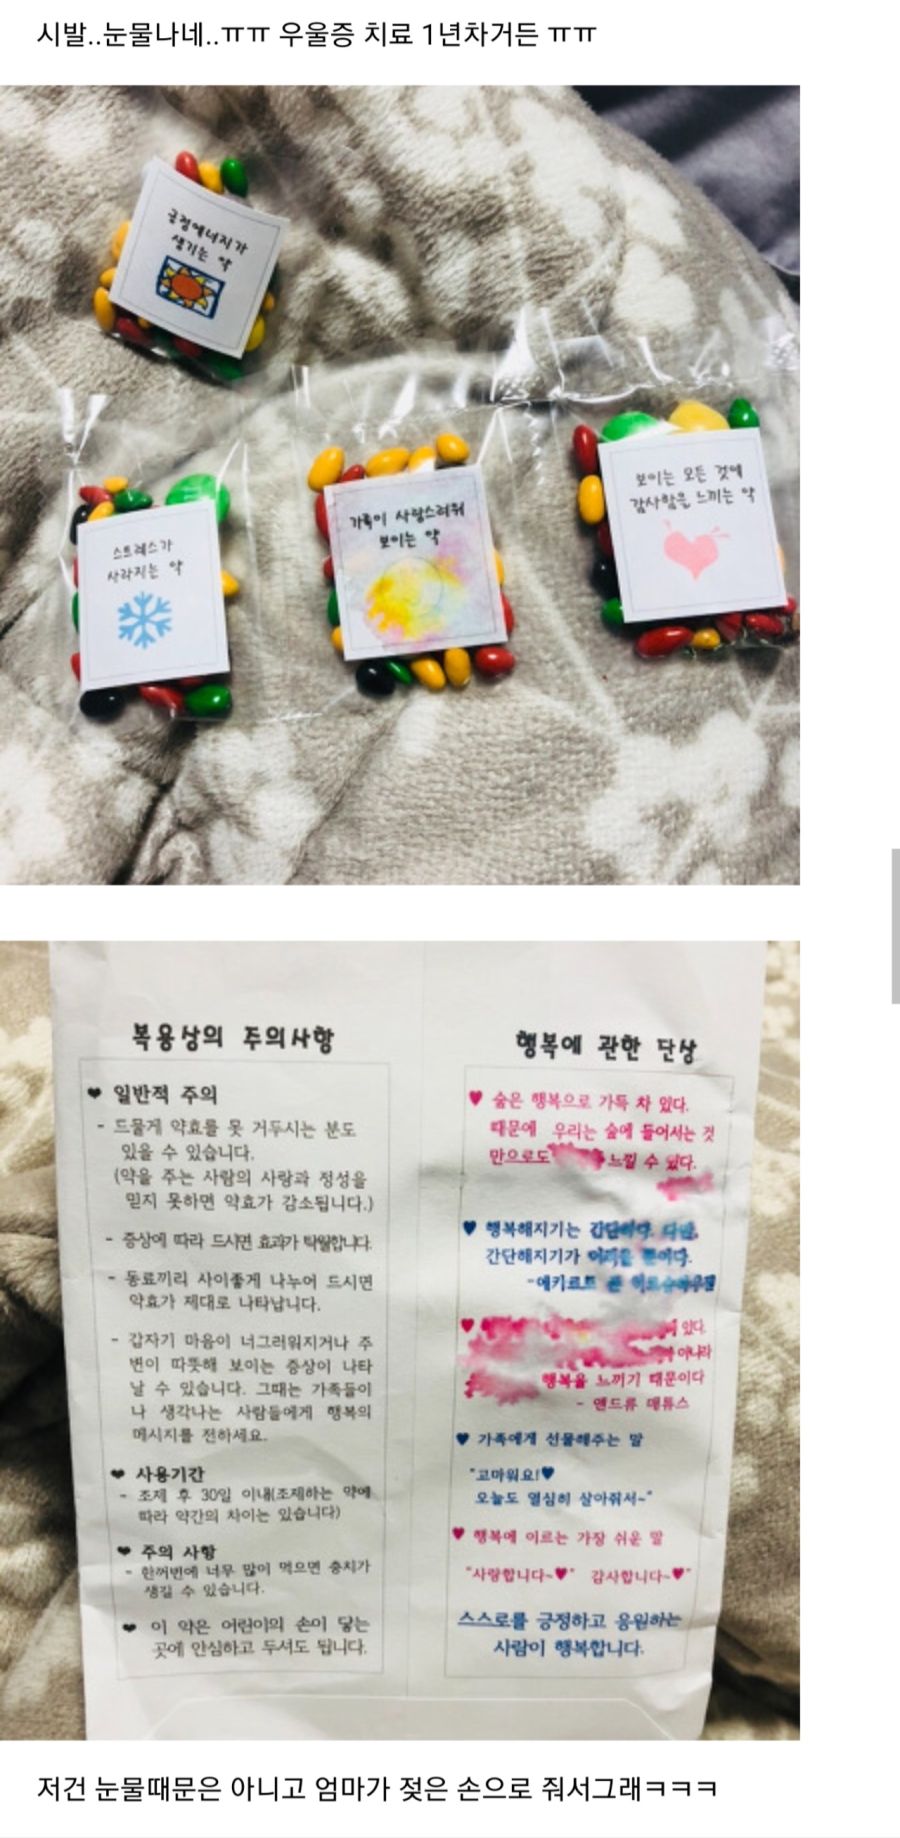 시발..눈물나네..ㅠㅠ 우울증 치료 1년차거든 ㅠㅠ
긍정에너지가
생기는 약
스트레스가
사라지는 약
가족이 사랑스러워
보이는 약
보이는 모든 것에
감사함을 느끼는 약
복용상의 주의사항
♥ 일반적 주의
- 드물게 약효를 못 거두시는 분도
있을 수 있습니다.
(약을 주는 사람의 사랑과 정성을
믿지 못하면 약효가 감소됩니다.)
- 증상에 따라 드시면 효과가 탁월합니다.
- 동료끼리 사이좋게 나누어 드시면
약효가 제대로 나타납니다.
- 갑자기 마음이 너그러워지거나 주
변이 따뜻해 보이는 증상이 나타
날 수 있습니다. 그때는 가족들이
나 생각나는 사람들에게 행복의
메시지를 전하세요.
♥ 사용기간
- 조제 후 30일 이내(조제하는 약에
따라 약간의 차이는 있습니다)
♥ 주의 사항
- 한꺼번에 너무 많이 먹으면 충치가
생길 수 있습니다.
♥ 이 약은 어린이의 손이 닿는
곳에 안심하고 두셔도 됩니다.
행복에 관한 단상
♥ 숲은 행복으로 가득 차 있다.
때문에 우리는 숲에 들어서는 것
만으로도 느낄 수 있다.
♥ 행복해지기는 간단하다. 다만,
간단해지기가 어려울 뿐이다.
-에키르트
♥ 있다.
아니라
행복을 느끼기 때문이다
- 앤드류 매튜스
♥ 가족에게 선물해주는 말
"고마워요!♥
오늘도 열심히 살아줘서~"
♥ 행복에 이르는 가장 쉬운 말
"사랑합니다~♥" 감사합니다~♥"
스스로를 긍정하고 응원하는
사람이 행복합니다.
저건 눈물때문은 아니고 엄마가 젖은 손으로 줘서그래ㅋㅋㅋ